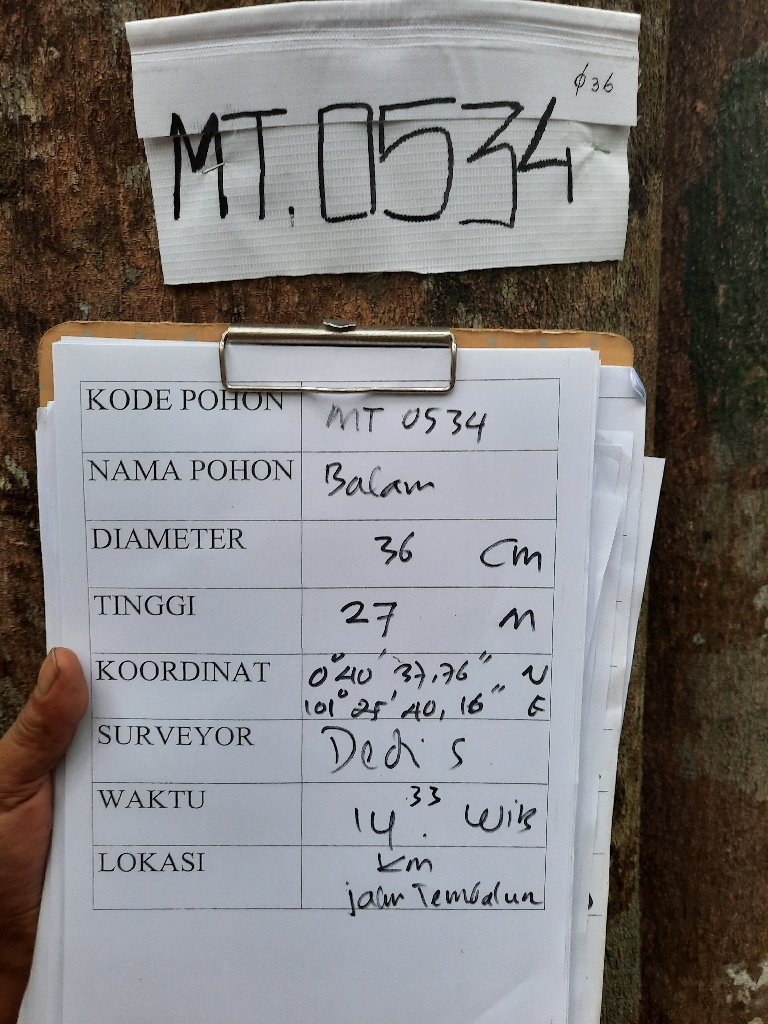 ϕ36
MT.0534
KODE POHON MT 0534
NAMA POHON Balam
DIAMETER 36 Cm
TINGGI 27 M
KOORDINAT 0° 40' 37,76" N
101° 25' 40,16" E
SURVEYOR Dedi S
WAKTU 14.33 WIB
LOKASI Km
jalur Tembalun